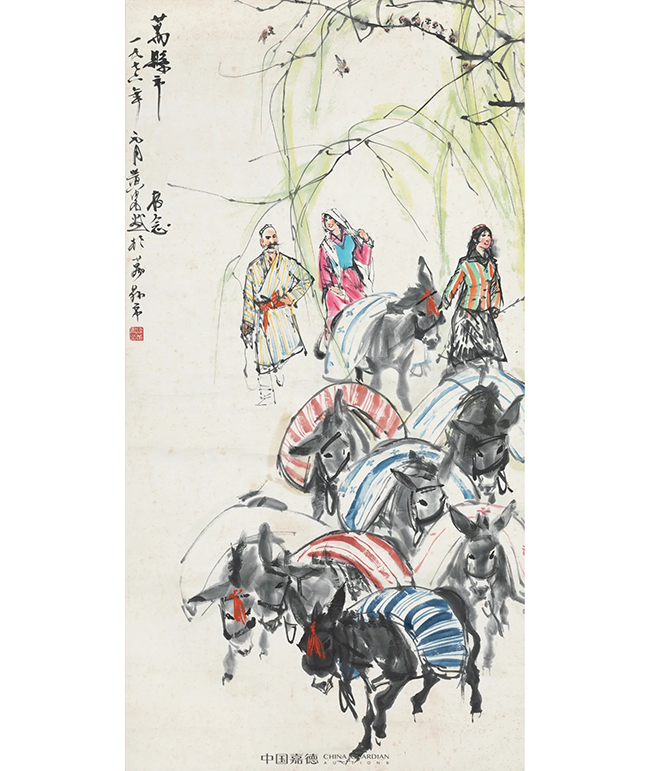 萬縣市 留念
一九七六年 元月 黄胄 於萬縣市
中国嘉德 CHINA GUARDIAN
AUCTIONS